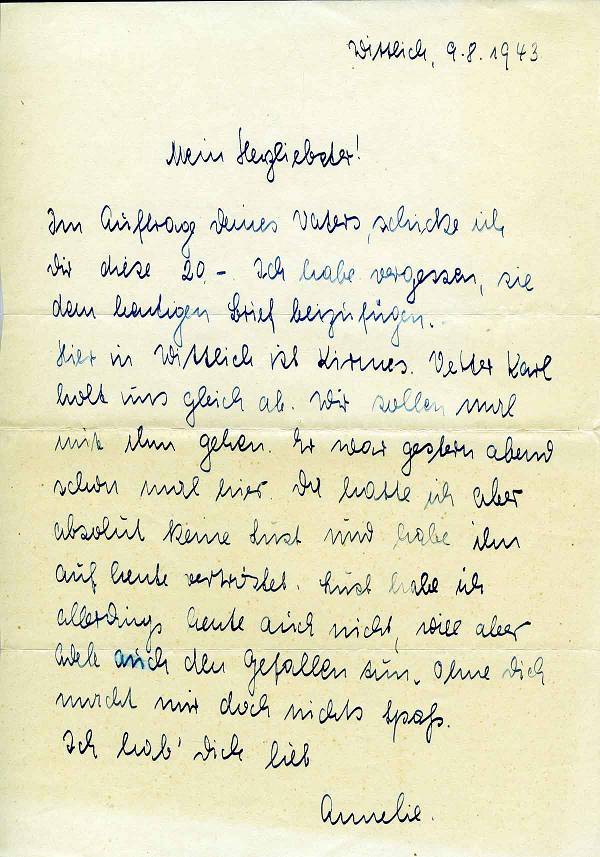 Wittlich, 9.8.1943
Mein Herzliebster!
Im Auftrage Deines Vaters, schicke ich
Dir diese 20.-. Ich habe vergessen, sie
dem heutigen Brief beizufügen.
Hier in Wittlich ist Kirmes. Vetter Karl
holt uns gleich ab. Wir sollen mal
mit ihm gehen. Er war gestern abend
schon mal hier. Da hatte ich aber
absolut keine Lust und habe ihn
auf heute vertröstet. Lust habe ich
allerdings heute auch nicht, will aber
auch den Gefallen tun. Ohne Dich
macht mir doch nichts Spaß.
Ich hab' Dich lieb
Annelie.